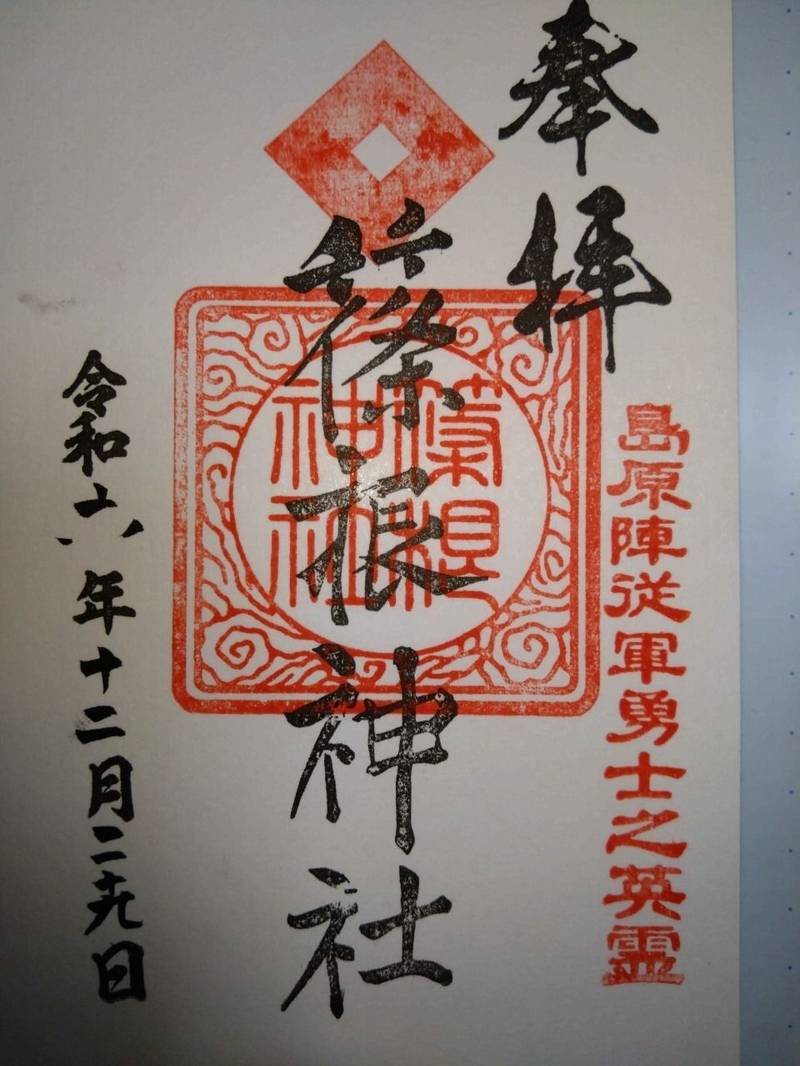 奉拝
島原陣従軍勇士之英霊
篠根神社
篠根
神社
令和六年十二月二十九日